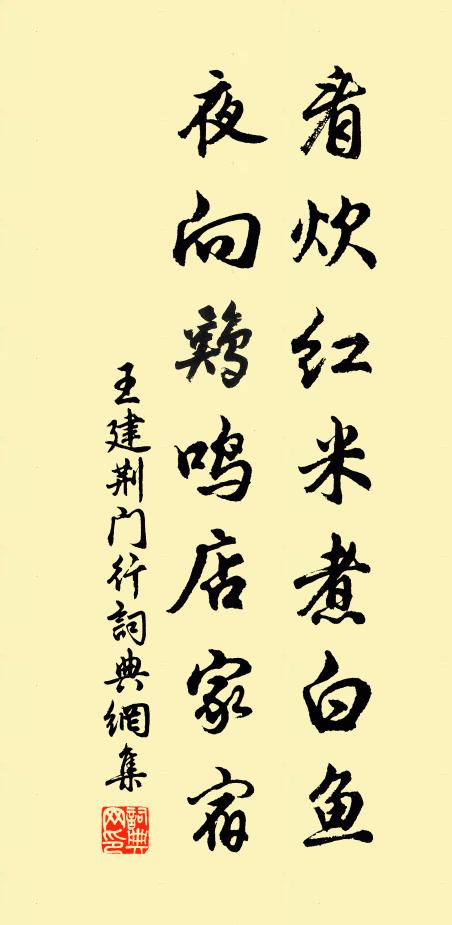 看炊红米煮白鱼
夜向鸡鸣店家宿
王建荆门行詞典網集
詞典网印